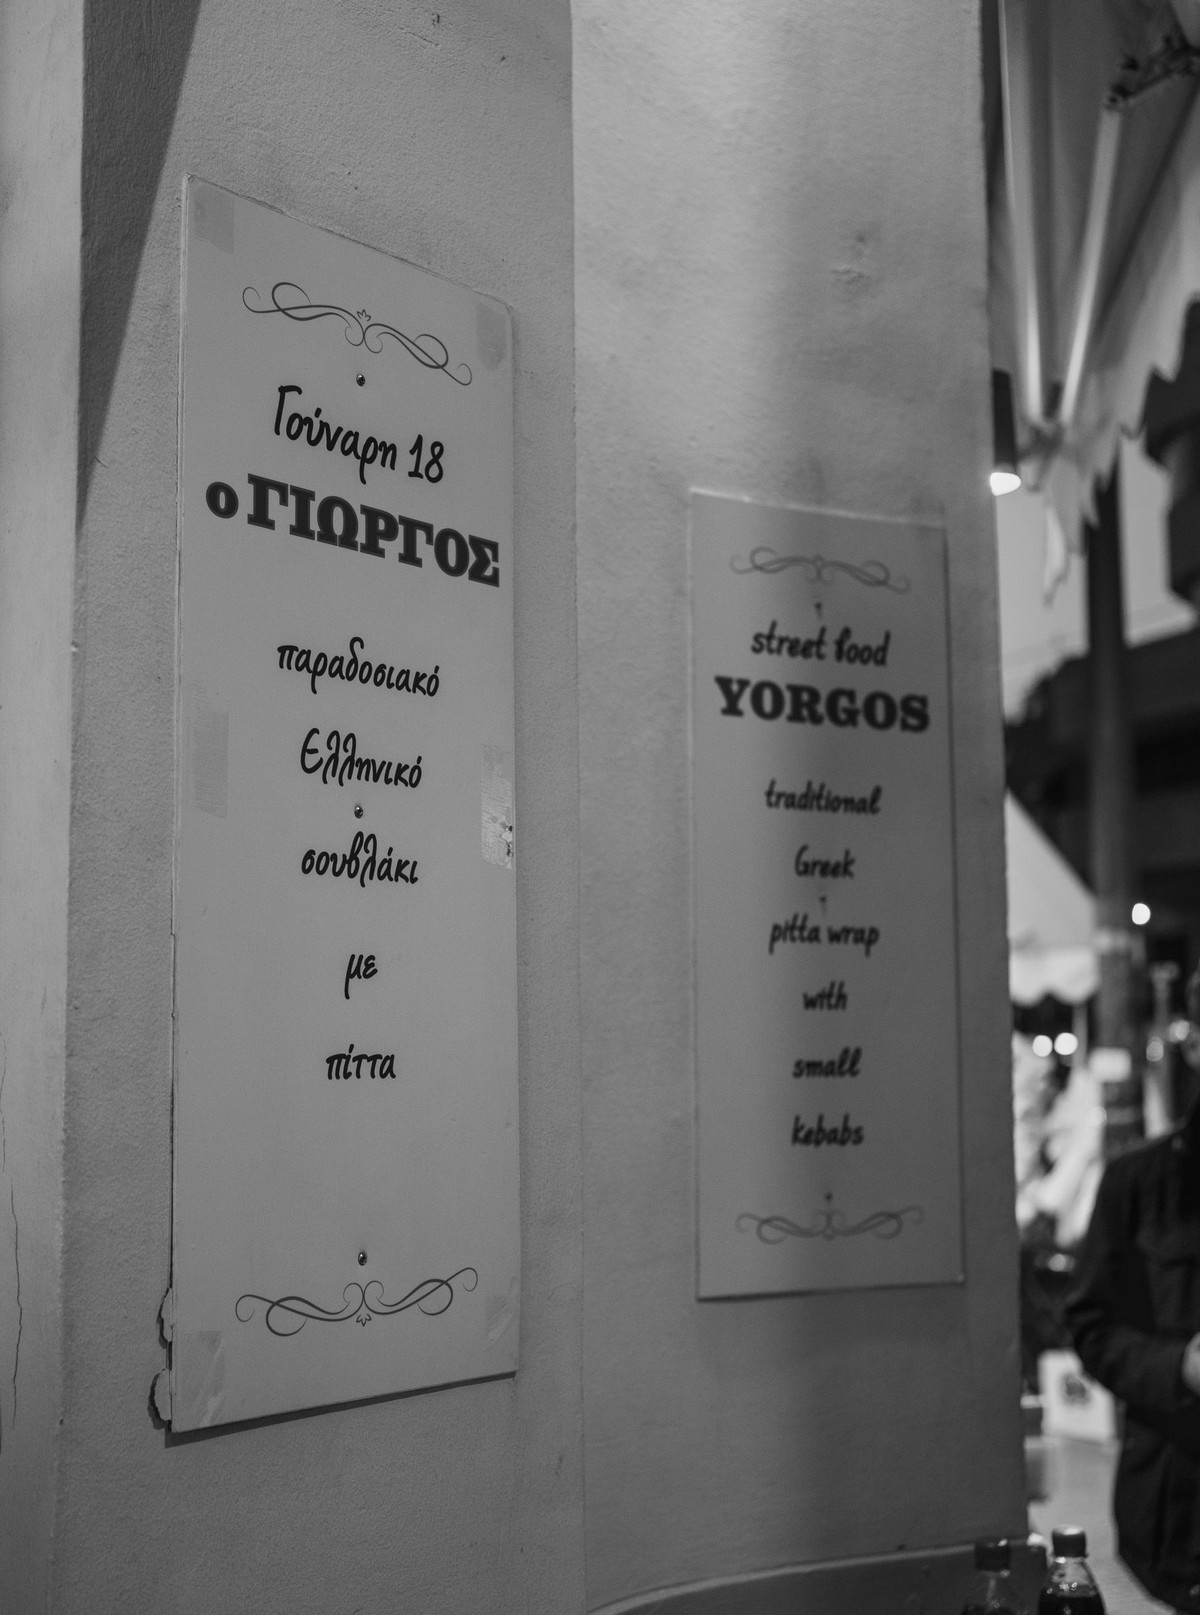 Γούναρη 18
ο ΓΙΩΡΓΟΣ
παραδοσιακό
Ελληνικό
σουβλάκι
με
πίττα
street food
YORGOS
traditional
Greek
pitta wrap
with
small
kebabs